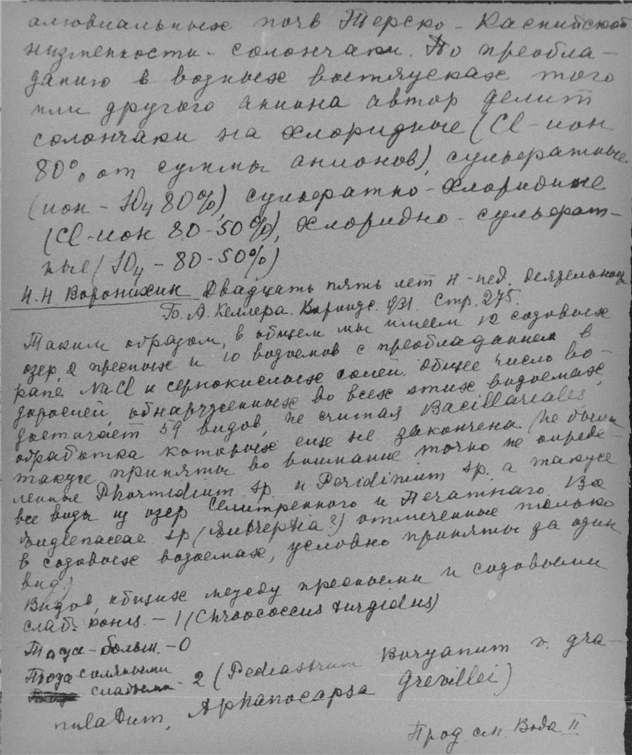 алювиальных почв Терско-Каспийской
низменности - солончаки. По преобла-
данию в водных вытяжках того
или другого аниона автор делит
солончаки на хлоридные (Cl-ион
80% от суммы анионов), сульфатные
(ион - SO4 80%), сульфатно-хлоридные
(Cl-ион 80-50%), хлоридно-сульфат-
ные (SO4 - 80-50%)
Н.Н. Воронихин Двадцать пять лет н-пед. деятельност
Б.А. Келлера. Воронеж. 931. Стр. 275.
Таким образом, в общем мы имеем 12 содовых
озер, 2 пресных и 10 водоемов с преобладанием в
рапе NaCl и сернокислых солей. Общее число во-
дорослей, обнаруженных во всех этих водоемах,
достигает 59 видов, не считая Bacillariales,
обработка которых еще не закончена (не были
также приняты во внимание точно не опреде-
ленные Phormidium sp. и Peridinium sp. а также
все виды из озер Селитренного и Печатного. Все
Euglenaceae sp. отмеченные только
в содовых водоемах, условно приняты за один
вид)
Видов, общих между пресными и содовыми
слаб. конц. - 1 (Chroococcus turgidus)
больш. - 0
солеными
слабыми - 2 (Pediastrum Boryanum v. gra-
nulatum, Aphanocapsa Grevillei)
Прод см. Вода II